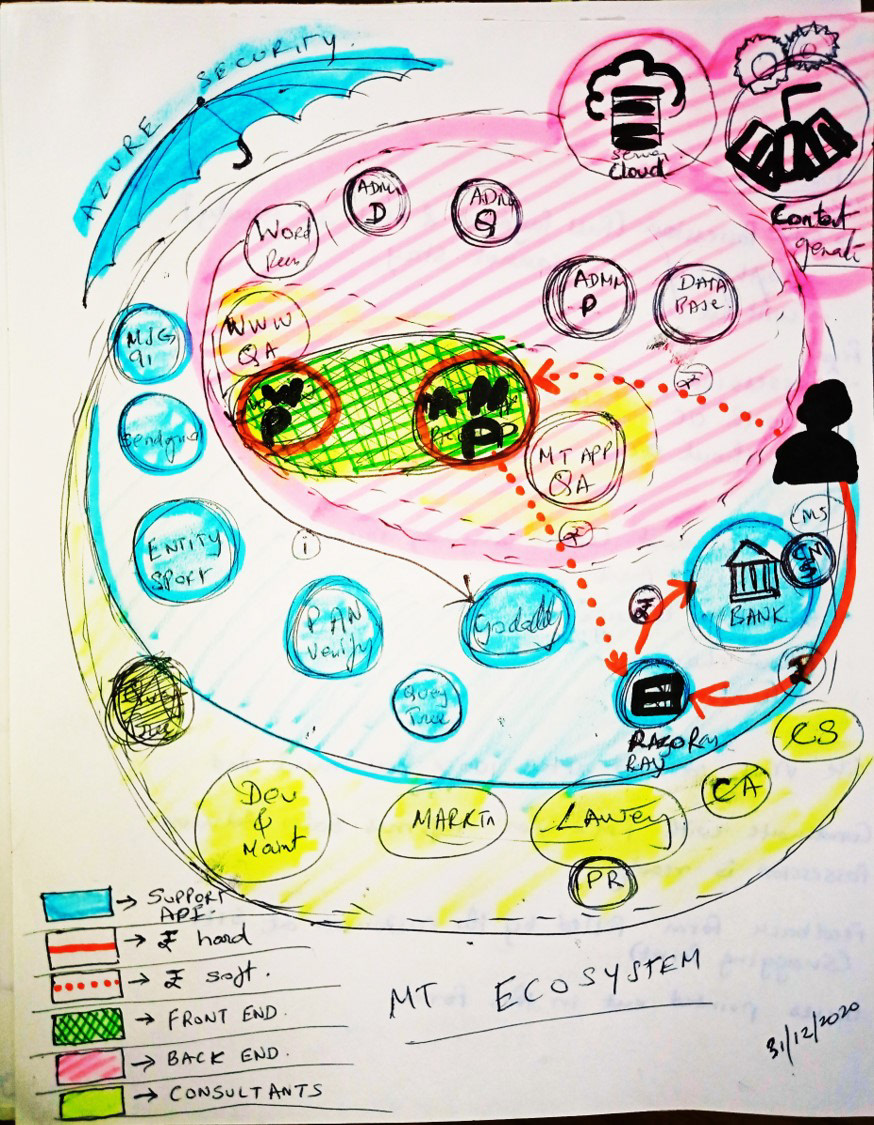 AZURE SECURITY.
Cloud
Content
ADMN
D
ADMN
Q
Word
ADMN
P
DATA
BASE.
MSG
91
WWW
QA
W
P
P
MT APP
QA
₹
Sendgrid
ENTITY
SPORT
i
₹
CMS
CMS
BANK
PAN
Verify
Godaddy
₹
₹
Query
Tree
RAZOR
PAY
CS
Dev
&
Maint
MARKTN
LAWYER
CA
PR
→ SUPPORT
API.
→ ₹ hard
→ ₹ soft.
→ FRONT END.
→ BACK END.
→ CONSULTANTS
MT ECOSYSTEM
31/12/2020